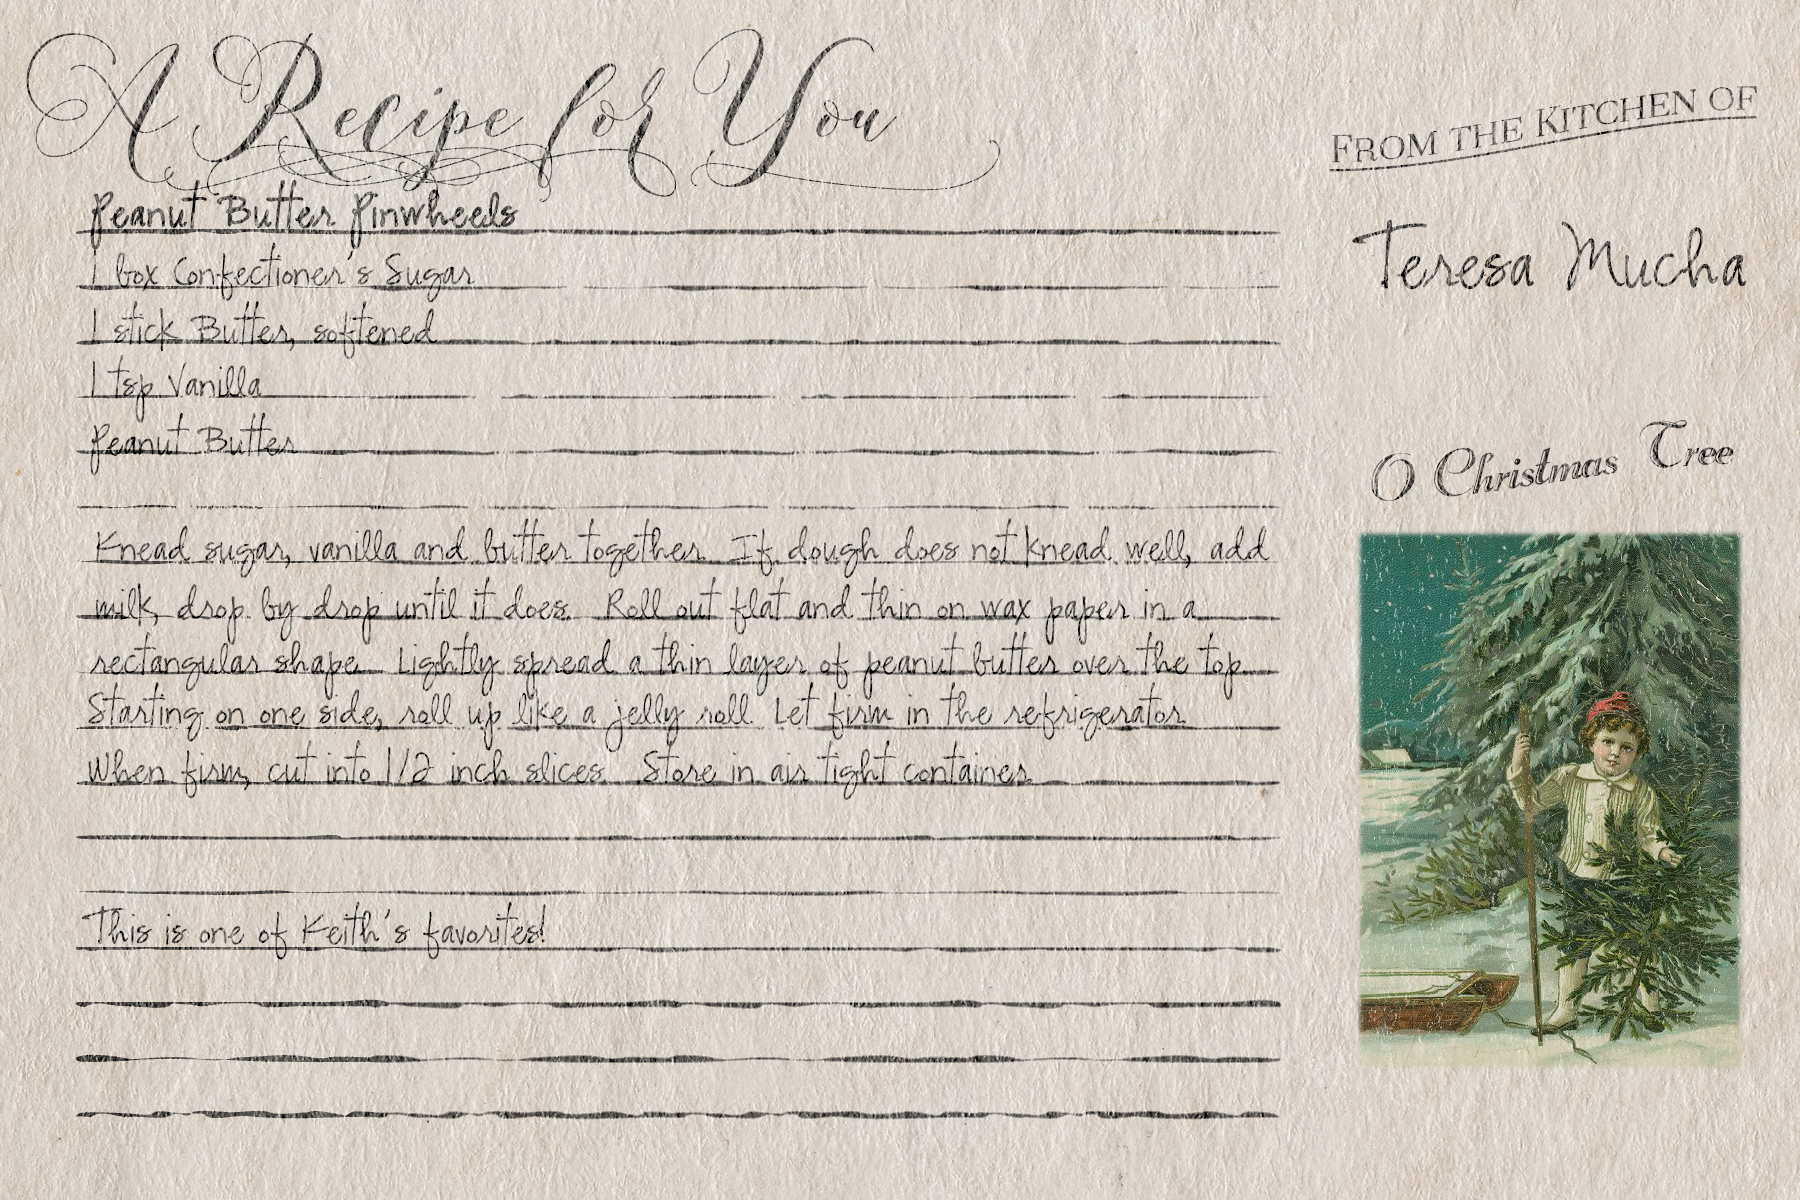 A Recipe for You
FROM THE KITCHEN OF
Teresa Mucha
Peanut Butter Pinwheels
1 box Confectioner's Sugar
1 stick Butter, softened
1 tsp Vanilla
Peanut Butter
Knead sugar, vanilla and butter together. If dough does not knead well, add
milk, drop by drop until it does. Roll out flat and thin on wax paper in a
rectangular shape. Lightly spread a thin layer of peanut butter over the top.
Starting on one side, roll up like a jelly roll. Let firm in the refrigerator.
When firm, cut into 1/2 inch slices. Store in air tight container.
This is one of Keith's favorites!
O Christmas Tree